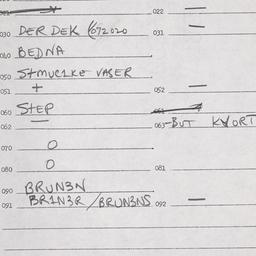 022
030 DER DEK 1092020 031
040 BEDNA
050 STMUE1KE VASER
051 + 052
060 STEP
062 063 -BUT KWORT
070 O
080 O 081
090 BRUN3N
091 BR1N3R / BRUN3NS 092